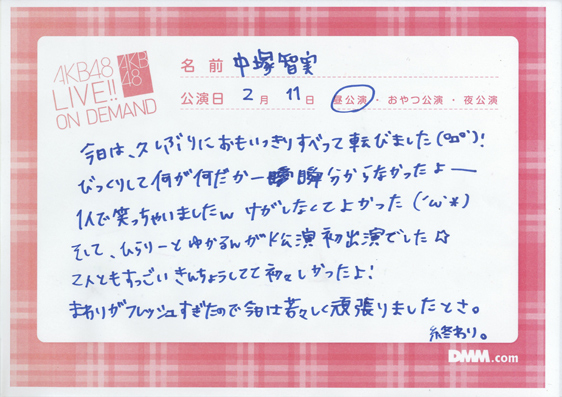 AKB48
LIVE!!
ON DEMAND
AKB
48
名前 中塚智実
公演日 2月 11日 昼公演・おやつ公演・夜公演
今日は、久しぶりにおもいっきりすべって転びました(°ロ°)!
びっくりして何が何だか一瞬分からなかったよー
1人で笑っちゃいましたw けがしなくてよかった(´ω`*)
そして、ひらりーとゆかるんがK公演初出演でした☆
2人ともすっごいきんちょうしてて初々しかったよ!
まわりがフレッシュすぎたので今日は若々しく頑張りましたとさ。
終わり。
DMM.com